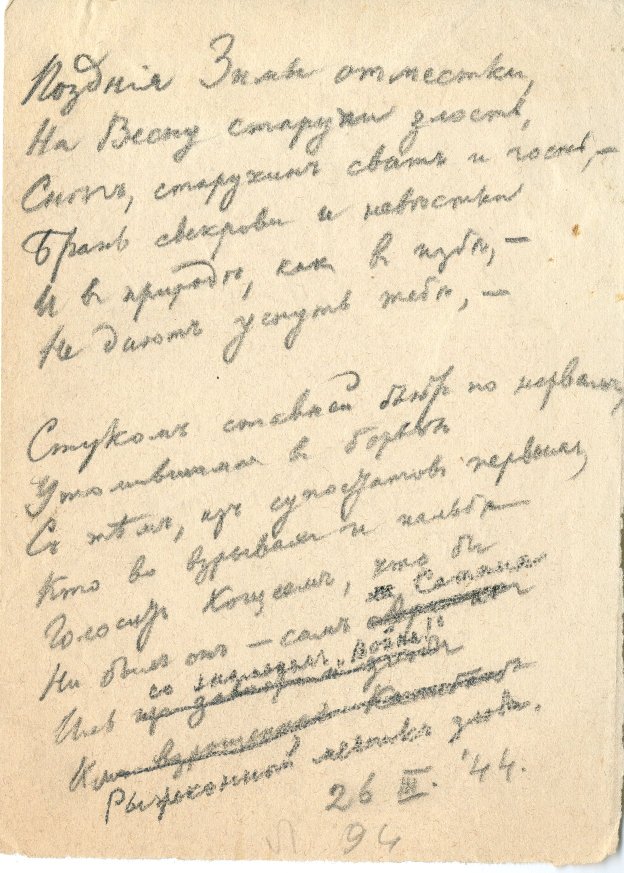 Поздній Зимы отместки,
На Весну старухи злость,
Снопъ, старухинъ сватъ и гость, —
Брань свекрови и невѣстки
И въ природѣ, как в избѣ, —
Не даютъ уснуть тебѣ, —
Стукомъ ставней бьютъ по нервамъ,
Утомившимся в борьбѣ
Съ тѣмъ, изъ супостатовъ первымъ,
Кто во взрывах и пальбѣ
Голоситъ Кощеемъ, кто бы
Ни былъ онъ — самъ Сатана
Иль со знаменемъ "Война!"
Рыжеконный мечникъ злобы.
26 III. '44.
94